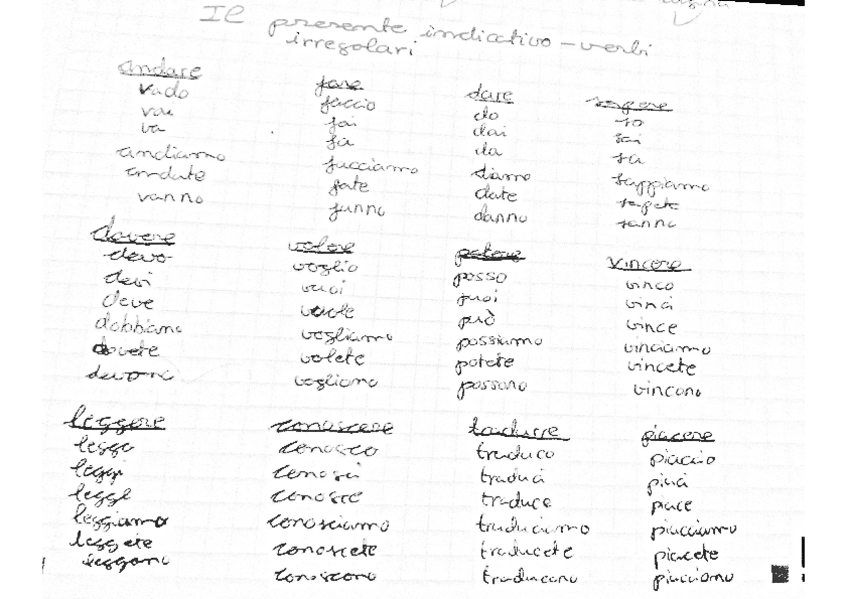 Il presente indicativo - verbi
irregolari
andare
vado
vai
va
andiamo
andate
vanno
fare
faccio
fai
fa
facciamo
fate
fanno
dare
do
dai
da
diamo
date
danno
sapere
so
sai
sa
sappiamo
sapete
sanno
dovere
devo
devi
deve
dobbiamo
dovete
devono
volere
voglio
vuoi
vuole
vogliamo
volete
vogliono
potere
posso
puoi
può
possiamo
potete
possono
vincere
vinco
vinci
vince
vinciamo
vincete
vincono
leggere
leggo
leggi
legge
leggiamo
leggete
leggono
conoscere
conosco
conosci
conosce
conosciamo
conoscete
conoscono
tradurre
traduco
traduci
traduce
traduciamo
traducete
traducono
piacere
piaccio
piaci
piace
piacciamo
piacete
piacciono